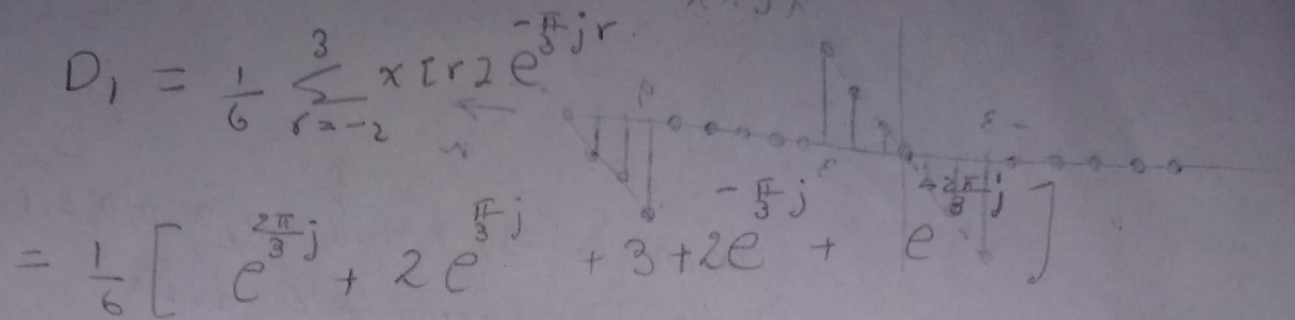 D₁ = 1/6 Σ_{r=-2}^{3} x[r] e^{-π/3 jr}
= 1/6 [ e^{2π/3 j} + 2 e^{π/3 j} + 3 + 2e^{-π/3 j} + e^{-2π/3 j} ]